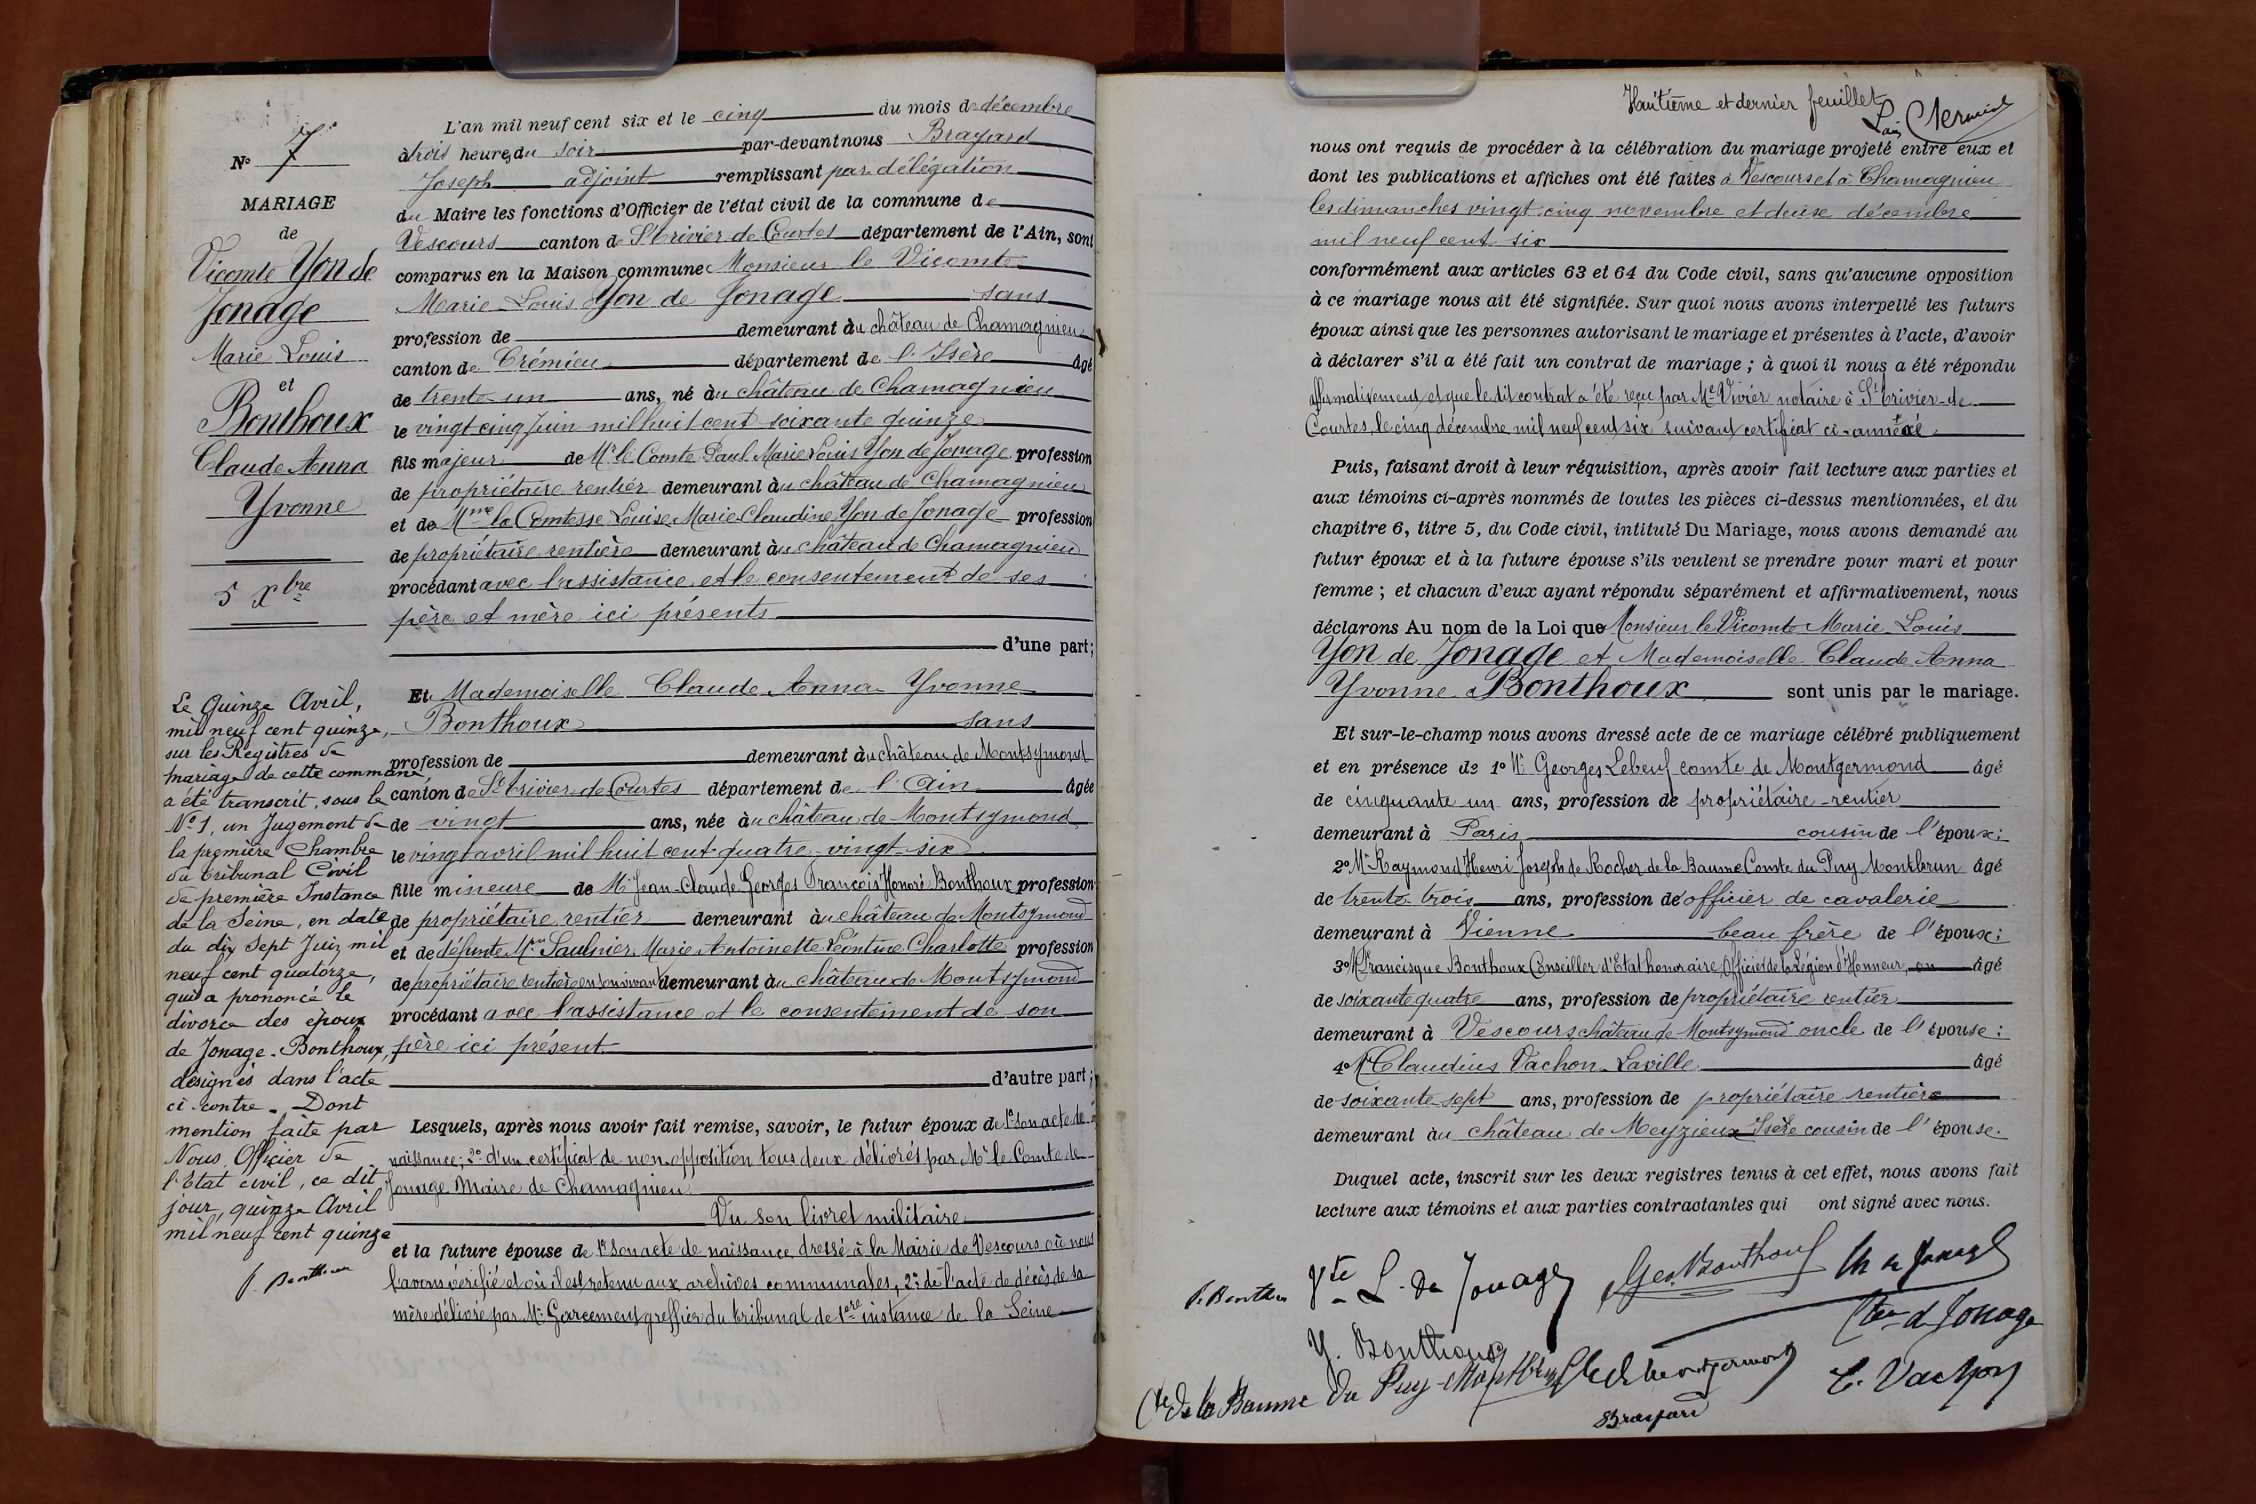 N° 7
MARIAGE
de
Vicomte Yon de
Jonage
Marie Louis
et
Bonthoux
Claude Anna
Yvonne
5 Xbre
Le Quinze Avril,
mil neuf cent quinze,
sur les Registres de
mariage de cette commune,
a été transcrit, sous le
N° 1, un Jugement de
la première Chambre
du Tribunal Civil
de première Instance
de la Seine, en date
du dix sept Juin mil
neuf cent quatorze,
qui a prononcé le
divorce des époux
de Jonage-Bonthoux,
désignés dans l'acte
ci-contre. Dont
mention faite par
Nous, Officier de
l'Etat civil, ce dit
jour, quinze Avril
mil neuf cent quinze
f. Bonthoux
L'an mil neuf cent six et le cinq du mois de décembre
à trois heures du soir par-devant nous Brayard
Joseph adjoint remplissant par délégation
du Maire les fonctions d'Officier de l'état civil de la commune de
Vescours canton de St Trivier de Courtes département de l'Ain, sont
comparus en la Maison commune Monsieur le Vicomte
Marie-Louis Yon de Jonage sans
profession de demeurant au château de Chamagnieu
canton de Crémieu département de l'Isère âgé
de trente-un ans, né au château de Chamagnieu
le vingt cinq juin mil huit cent soixante quinze
fils majeur de Mr le Comte Paul Marie Louis Yon de Jonage profession
de propriétaire rentier demeurant au château de Chamagnieu
et de Mme la Comtesse Louise Marie Claudine Yon de Jonage profession
de propriétaire rentière demeurant au château de Chamagnieu
procédant avec l'assistance et le consentement de ses
père et mère ici présents
d'une part;
Et Mademoiselle Claude Anna Yvonne
Bonthoux sans
profession de demeurant au château de Montsymond
canton de St Trivier de Courtes département de l'Ain âgée
de vingt ans, née au château de Montsymond
le vingt avril mil huit cent quatre-vingt-six
fille mineure de Mr Jean-Claude Georges François Honoré Bonthoux profession
de propriétaire rentier demeurant au château de Montsymond
et de défunte Mme Saulnier Marie Antoinette Léontine Charlotte profession
de propriétaire rentière en son vivant demeurant au château de Montsymond
procédant avec l'assistance et le consentement de son
père ici présent
d'autre part;
Lesquels, après nous avoir fait remise, savoir, le futur époux de 1° son acte de
naissance; 2° d'un certificat de non-opposition tous deux délivrés par Mr le Comte de
Jonage Maire de Chamagnieu
Vu son livret militaire
et la future épouse de 1° son acte de naissance dressé à la Mairie de Vescours où nous
l'avons vérifié et où il est retenu aux archives communales, 2° de l'acte de décès de sa
mère délivré par Mr Garcement greffier du tribunal de 1ère instance de la Seine
Huitième et dernier feuillet
nous ont requis de procéder à la célébration du mariage projeté entre eux et
dont les publications et affiches ont été faites à Vescours et à Chamagnieu
les dimanches vingt-cinq novembre et deux décembre
mil neuf cent six
conformément aux articles 63 et 64 du Code civil, sans qu'aucune opposition
à ce mariage nous ait été signifiée. Sur quoi nous avons interpellé les futurs
époux ainsi que les personnes autorisant le mariage et présentes à l'acte, d'avoir
à déclarer s'il a été fait un contrat de mariage; à quoi il nous a été répondu
affirmativement et que le dit contrat a été reçu par Me Vivier notaire à St Trivier-de-
Courtes, le cinq décembre mil neuf cent six suivant certificat ci-annexé
Puis, faisant droit à leur réquisition, après avoir fait lecture aux parties et
aux témoins ci-après nommés de toutes les pièces ci-dessus mentionnées, et du
chapitre 6, titre 5, du Code civil, intitulé Du Mariage, nous avons demandé au
futur époux et à la future épouse s'ils veulent se prendre pour mari et pour
femme; et chacun d'eux ayant répondu séparément et affirmativement, nous
déclarons Au nom de la Loi que Monsieur le Vicomte Marie Louis
Yon de Jonage et Mademoiselle Claude Anna
Yvonne Bonthoux sont unis par le mariage.
Et sur-le-champ nous avons dressé acte de ce mariage célébré publiquement
et en présence de 1° Mr Georges Lebeuf comte de Montgermond âgé
de cinquante un ans, profession de propriétaire-rentier
demeurant à Paris cousin de l'époux;
2° Mr Raymond Henri Joseph de Rochez de la Baume Comte du Puy Montbrun âgé
de trente-trois ans, profession de officier de cavalerie
demeurant à Vienne beau frère de l'époux;
3° Mr Francisque Bonthoux Conseiller d'Etat honoraire, Officier de la Légion d'Honneur, âgé
de soixante quatre ans, profession de propriétaire rentier
demeurant à Vescours, château de Montsymond oncle de l'épouse;
4° Mr Claudius Vachon-Laville âgé
de soixante sept ans, profession de propriétaire rentier
demeurant au château de Meyzieux Isère cousin de l'épouse.
Duquel acte, inscrit sur les deux registres tenus à cet effet, nous avons fait
lecture aux témoins et aux parties contractantes qui ont signé avec nous.
f. Bonthoux Vte L. de Jonage Geo. Bonthoux de Jonage
Y. Bonthoux Ctesse de Jonage
Cte de la Baume du Puy-Montbrun Cte de Montgermont C. Vachon
Brayard